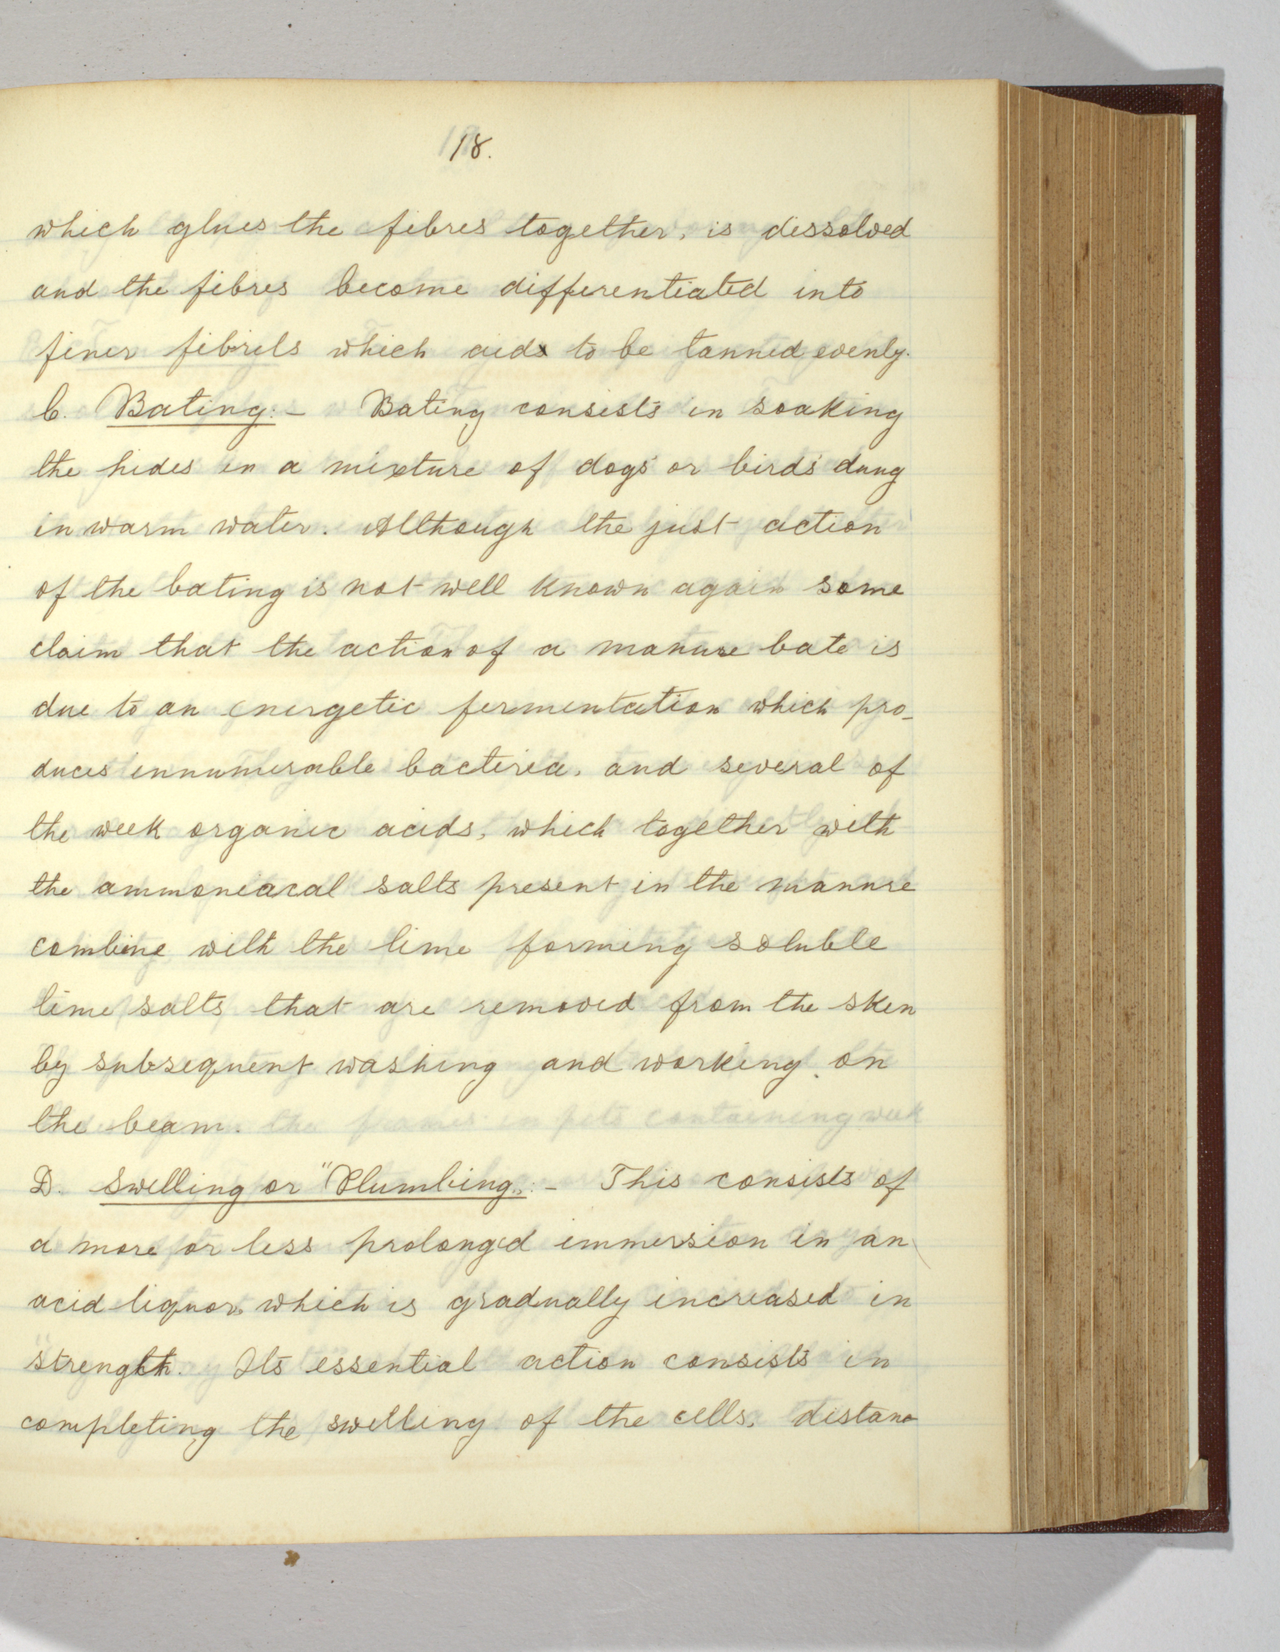 18.
which glues the fibres together, is dissolved
and the fibres become differentiated into
finer fibrils which aids to be tanned evenly.
C. Bating:- Bating consists in soaking
the hides in a mixture of dogs' or birds' dung
in warm water. Although the just action
of the bating is not well known again some
claim that the action of a manure bate is
due to an energetic fermentation which pro-
duces innumerable bacteria, and several of
the week organic acids, which together with
the ammoniacal salts present in the manure
combine with the lime forming soluble
lime salts that are removed from the skin
by subsequent washing and working on
the beam.
D. Swelling or "Plumbing„:- This consists of
a more or less prolonged immersion in an
acid liquor, which is gradually increased in
strength. Its essential action consists in
completing the swelling of the cells,